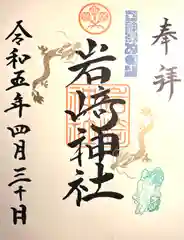 奉拝
岩崎神社
令和五年四月三十日